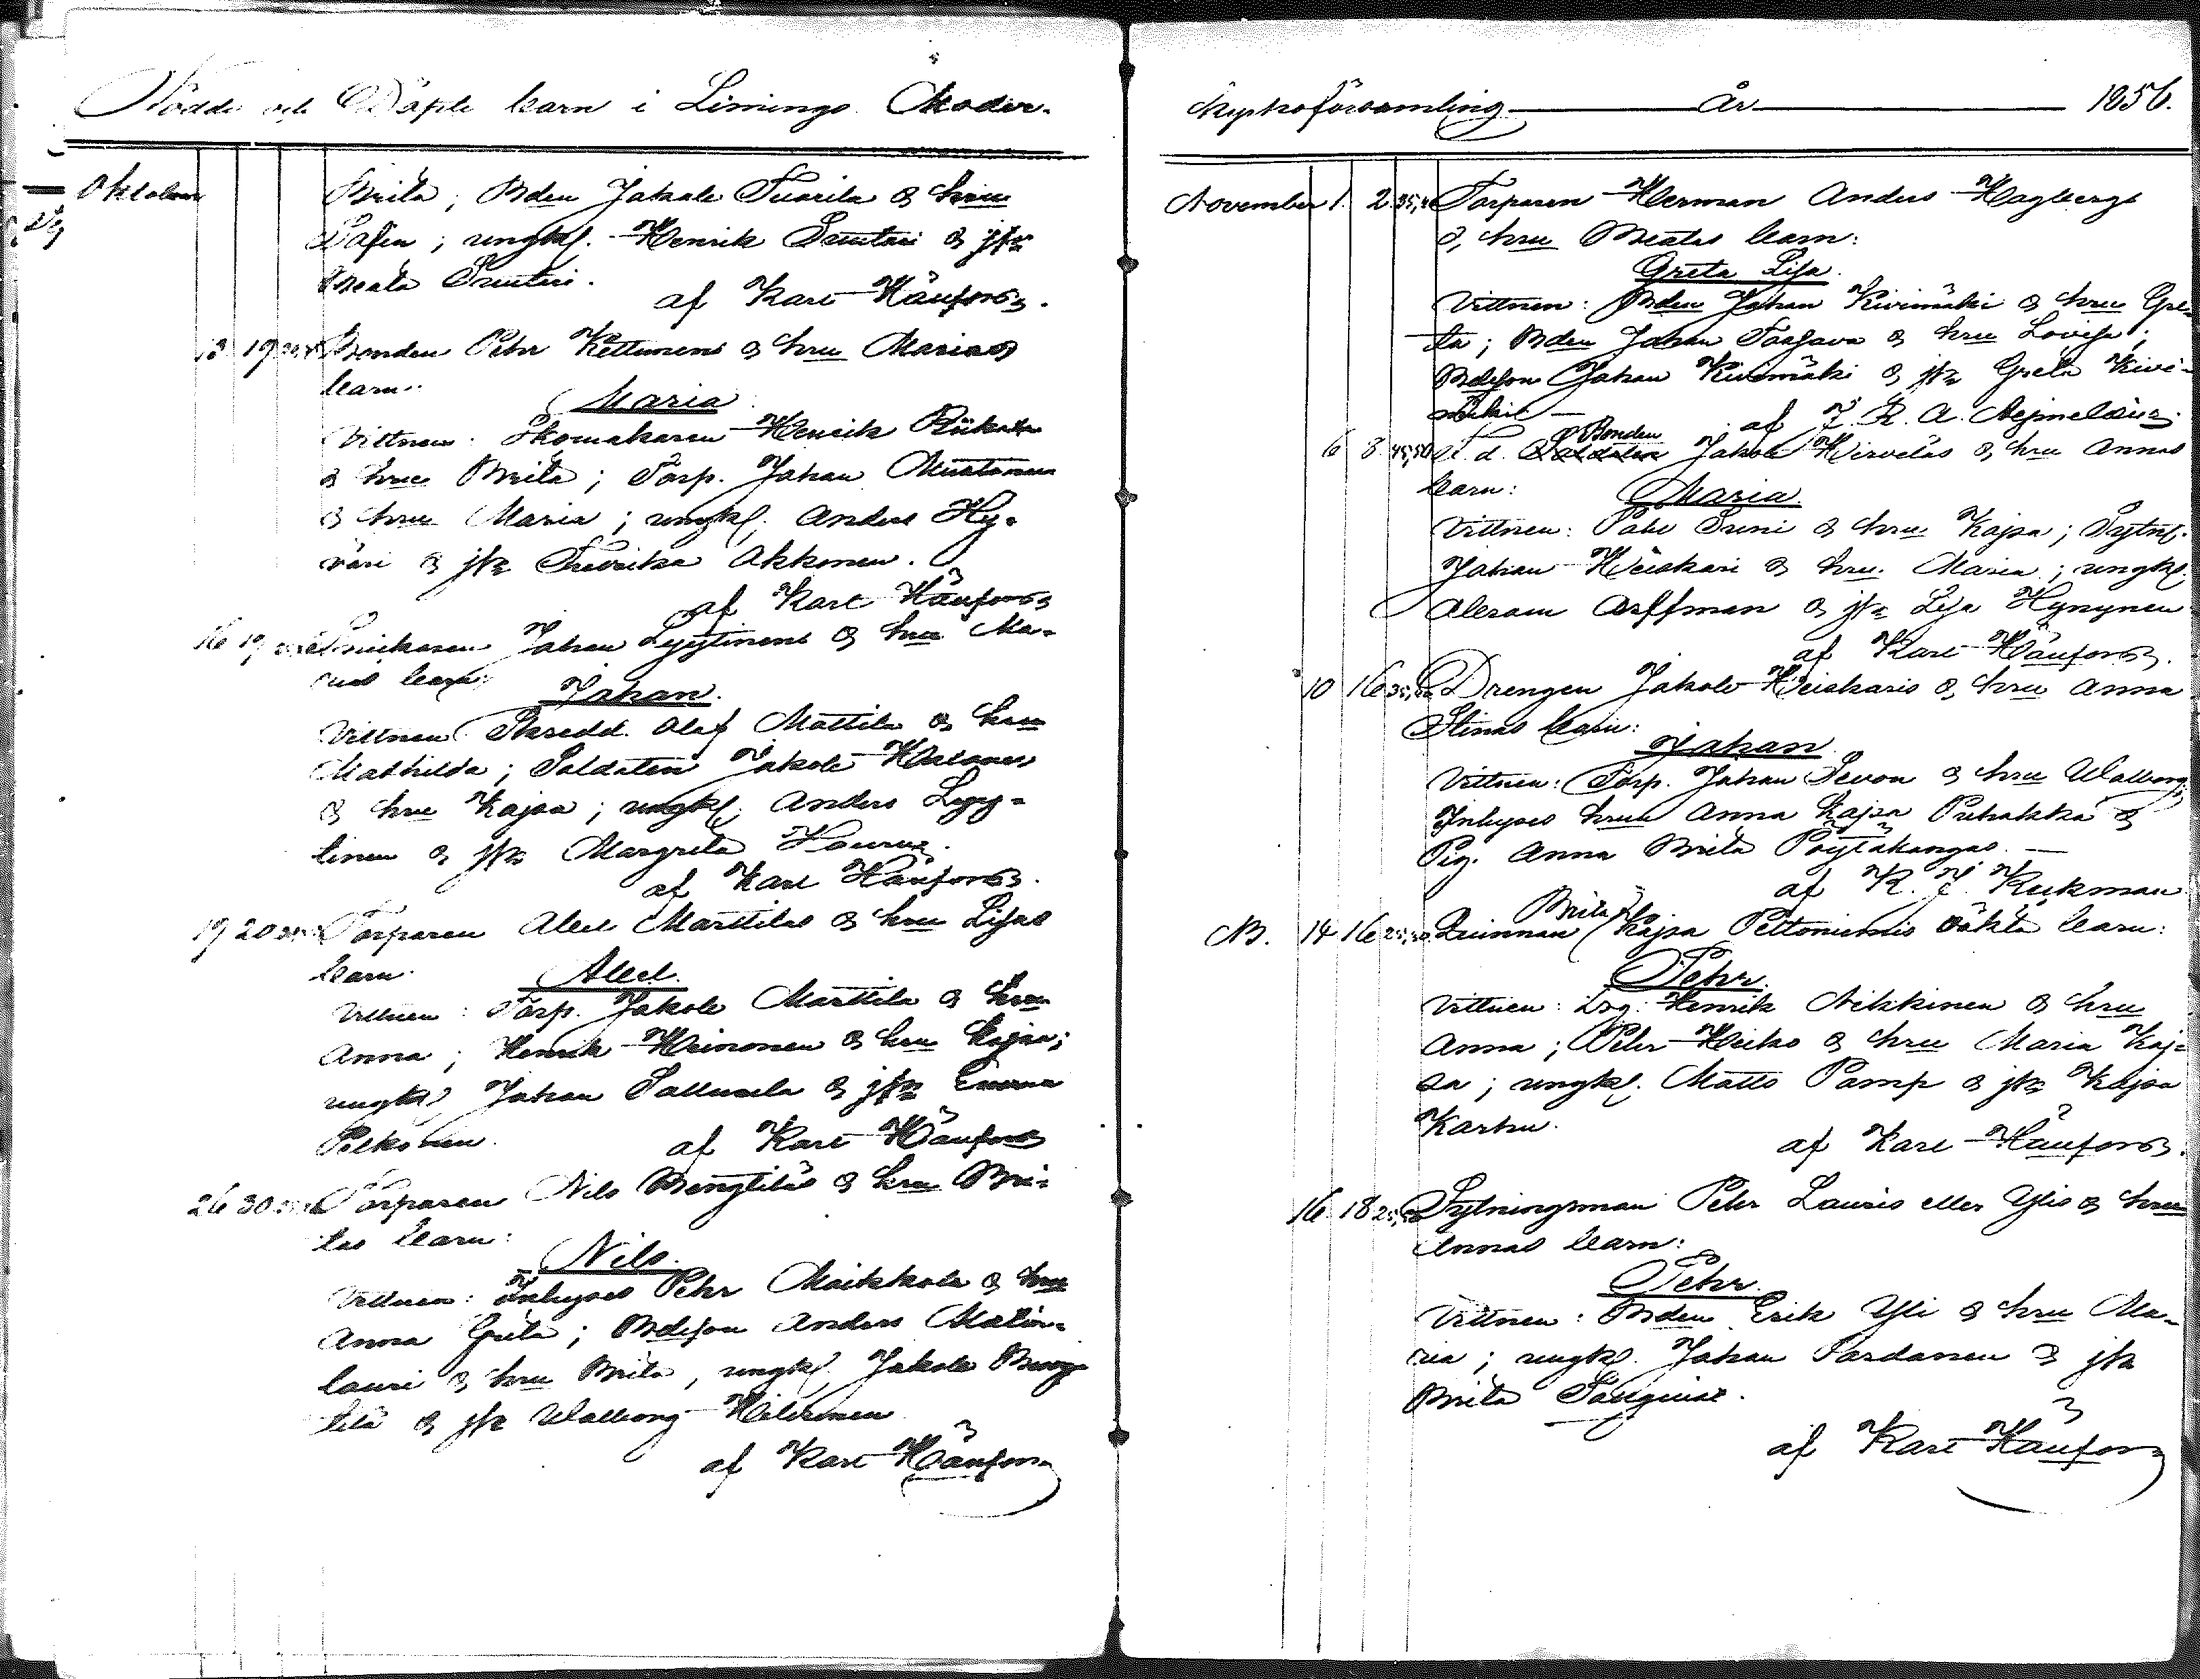 Födde och Döpte barn i Limingo Moder-
Oktober
Brita; Bden Jakob Tuorila & hru
Sofia; ungkl. Henrik Suutari & jfr
Beata Suutari.
af Karl Hänfors.
13 19 Bonden Pehr Kettunens & hru Marias
barn:
Maria
Vittnen: Skomakaren Henrik
& hru Brita; Torp. Johan Mustonen
& hru Maria; ungkl. Anders Hy-
väri & jfr Fredrika Akkonen.
af Karl Hänfors
16 19 Johan Lyytinens & hru Ma-
rias barn:
Johan.
Vittnen: Skredd. Olof Mattila & hru
Mathilda; Soldaten Jakob
& hru Kajsa; ungkl. Anders Lyy-
tinen & jfr Margreta
af Karl Hänfors.
19 20 Torparen Abel Marttilas & hru Lisas
barn:
Abel.
Vittnen: Torp. Jakob Marttila & hru
Anna; Henrik Heinonen & hru Kajsa;
ungkl. Johan & jfr
Pelkonen. af Karl Hänfors
26 30 Torparen Nils Bengtiläs & hru Bri-
tas barn:
Nils.
Vittnen: Inhyses Pehr Moikkola & hru
Anna Greta; Bdeson Anders Matin-
lauri & hru Brita, ungkl. Jakob Beng-
tilä & jfr Walborg
af Karl Hänfors
Kyrkoförsamling År 1856.
November 1. 2. 35,40 Torparen Herman Anders Hagbergs
& hru Beatas barn:
Greta Lisa.
Vittnen: Bden Johan Kivimäki & hru Gre-
ta; Bden Johan Tassava & hru Lovisa;
Bdeson Johan Kivimäki & jfr Greta Kivi-
mäki — af F. R. A. Hejmelæus.
Bonden
6 8 45,50 F. d. Soldaten Jakob Hirveläs & hru Annas
barn:
Maria.
Vittnen: Påhl Suni & hru Kajsa; Sytn.
Johan Heiskari & hru Maria; ungkl.
Abraam Arffman & jfr Lisa Hyvynen
af Karl Hänfors.
10 16 Drengen Jakob Heiskaris & hru Anna
Stinas barn:
Johan
Vittnen: Torp. Johan Sevon & hru Walborg;
Inhyses hru Anna Kajsa Puhakka &
Pig. Anna Brita Pöytäkangas. —
af K. J. Kukman
Brita
NB. 14 16 25,30 Qvinnan Kajsa Peltoniemis oäkta barn:
Pehr.
Vittnen: Drg. Henrik Nikkinen & hru
Anna; Pehr Heiko & hru Maria Kaj-
sa; ungkl. Matts Pamp & jfr Kajsa
Karhu.
af Karl Hänfors.
16 18 Sytningsman Pehr Lauris eller Ylis & hru
Annas barn:
Pehr.
Vittnen: Bden Erik Yli & hru Ma-
ria; ungkl. Johan Pardanen & jfr
Brita Tauqvist.
af Karl Hänfors